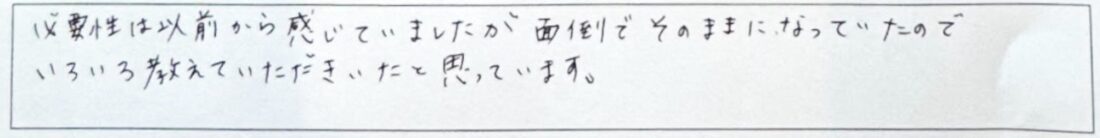 必要性は以前から感じていましたが面倒でそのままになっていたので
いろいろ教えていただきいたと思っています。